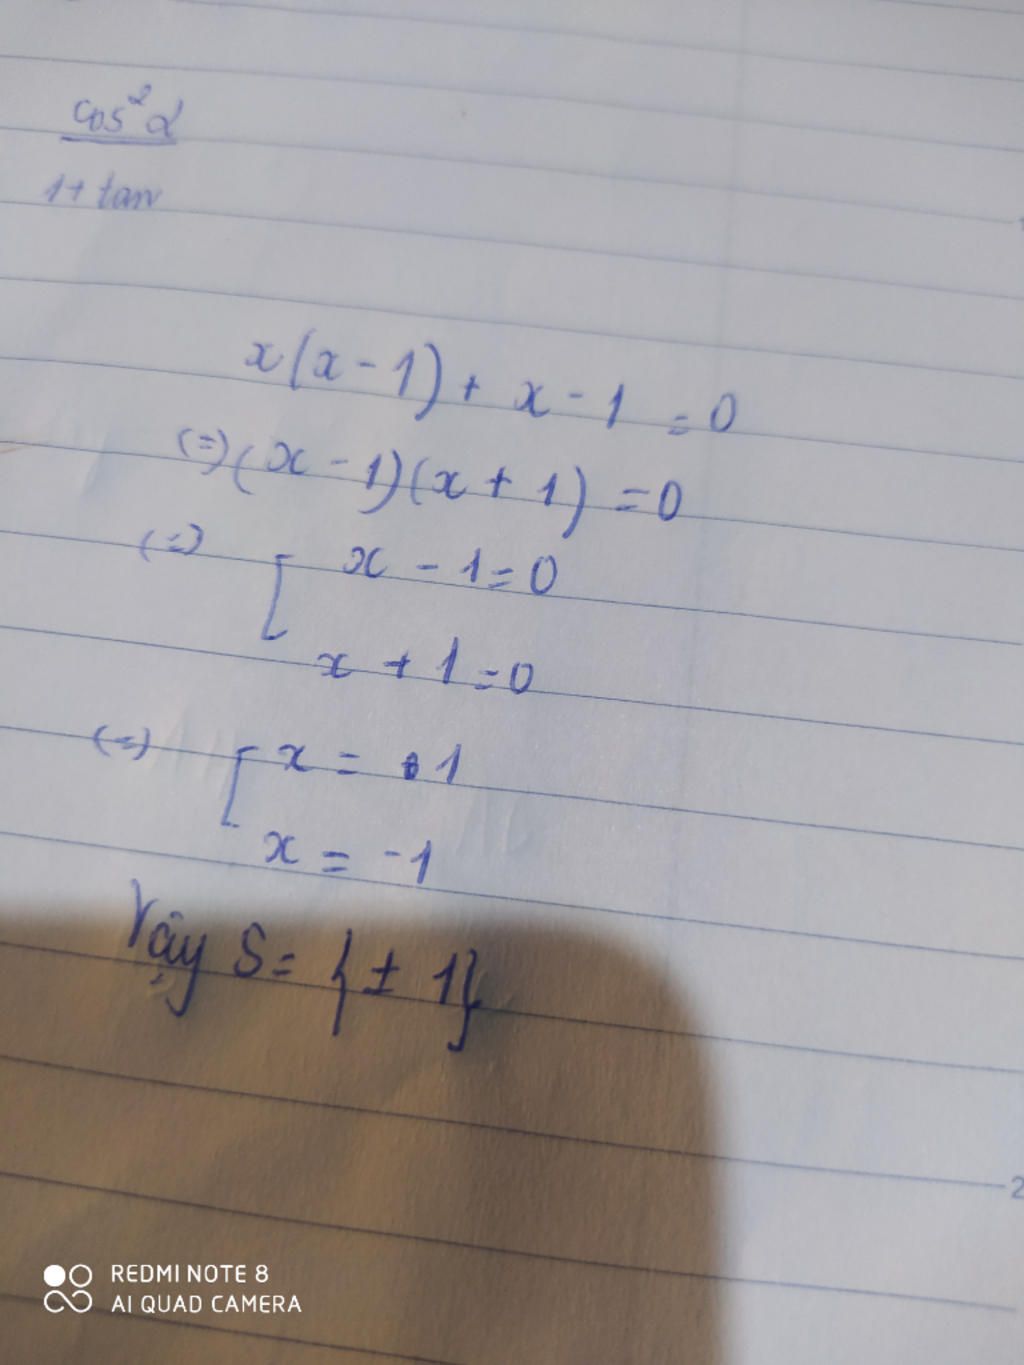 cos²α
1+ tan
x(x-1) + x - 1 = 0
(=)(x - 1)(x + 1) = 0
(=) [ x - 1 = 0
x + 1 = 0
(=) [ x = 1
x = -1
Vậy S = {± 1}
2
REDMI NOTE 8
AI QUAD CAMERA